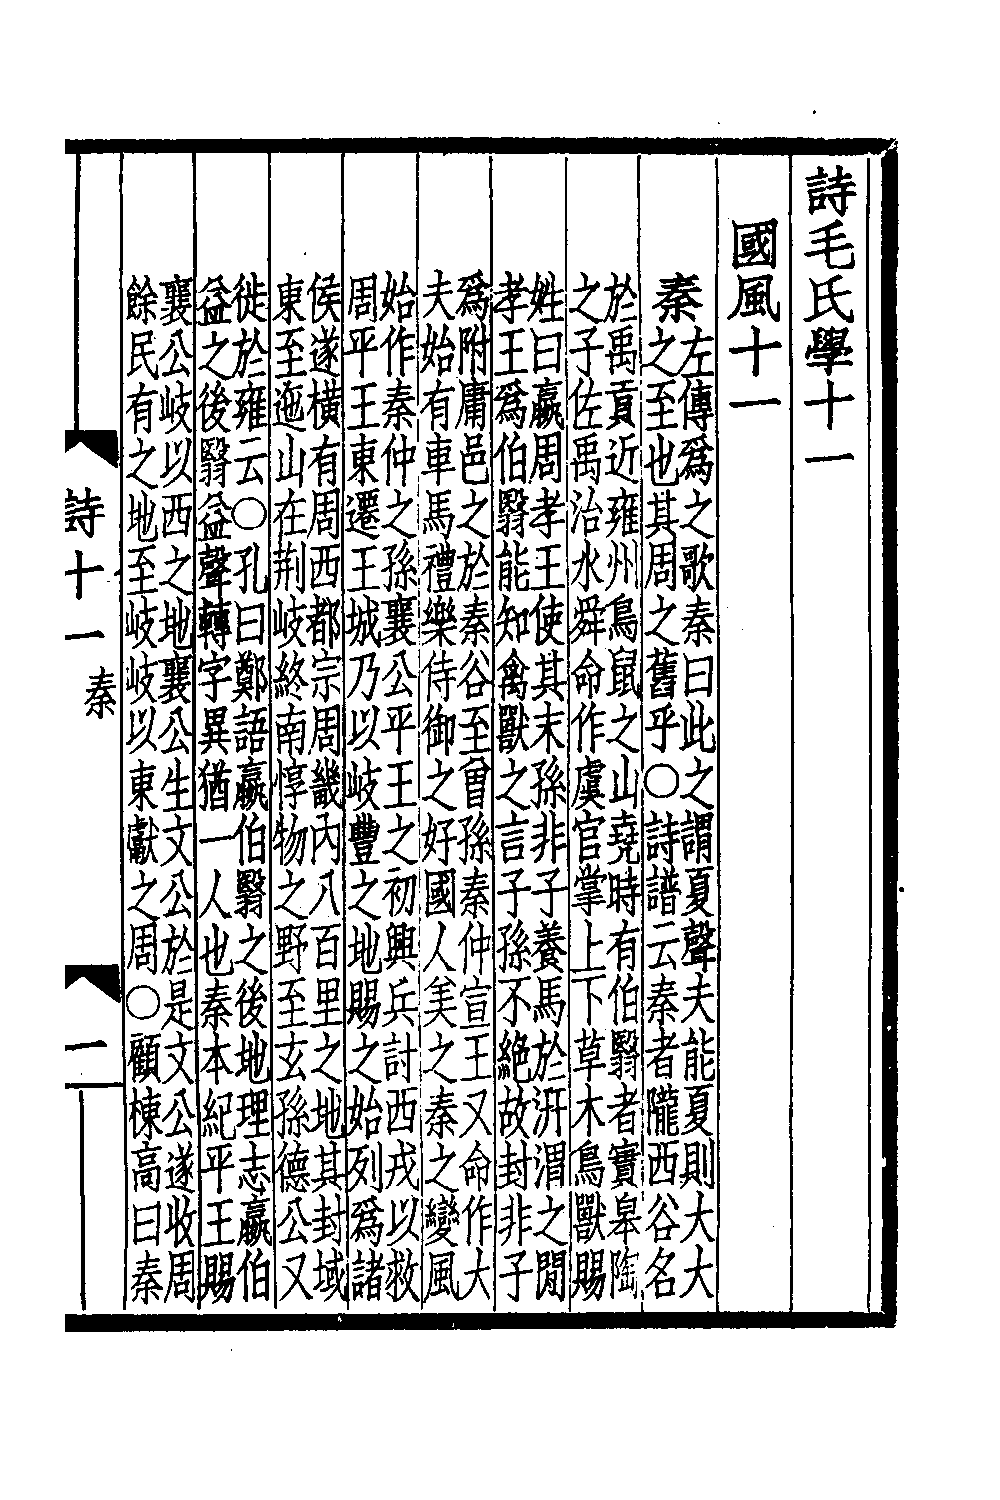 詩毛氏學十一
國風十一
秦
左傳爲之歌秦曰此之謂夏聲夫能夏則大大
之至也其周之舊乎○詩譜云秦者隴西谷名
於禹貢近雍州鳥鼠之山堯時有伯翳者實皋陶
之子佐禹治水舜命作虞官掌上下草木鳥獸賜
姓曰嬴周孝王使其末孫非子養馬於汧渭之閒
孝王爲伯翳能知禽獸之言子孫不絶故封非子
爲附庸邑之於秦谷至曾孫秦仲宣王又命作大
夫始有車馬禮樂侍御之好國人美之秦之變風
始作秦仲之孫襄公平王之初興兵討西戎以救
周平王東遷王城乃以岐豐之地賜之始列爲諸
侯遂橫有周西都宗周畿內八百里之地其封域
東至迆山在荆岐終南惇物之野至玄孫德公又
徙於雍云○孔曰鄭語嬴伯翳之後地理志嬴伯
益之後翳益聲轉字異猶一人也秦本紀平王賜
襄公岐以西之地襄公生文公於是文公遂收周
餘民有之地至岐岐以東獻之周○顧棟高曰秦
詩十一
秦
一